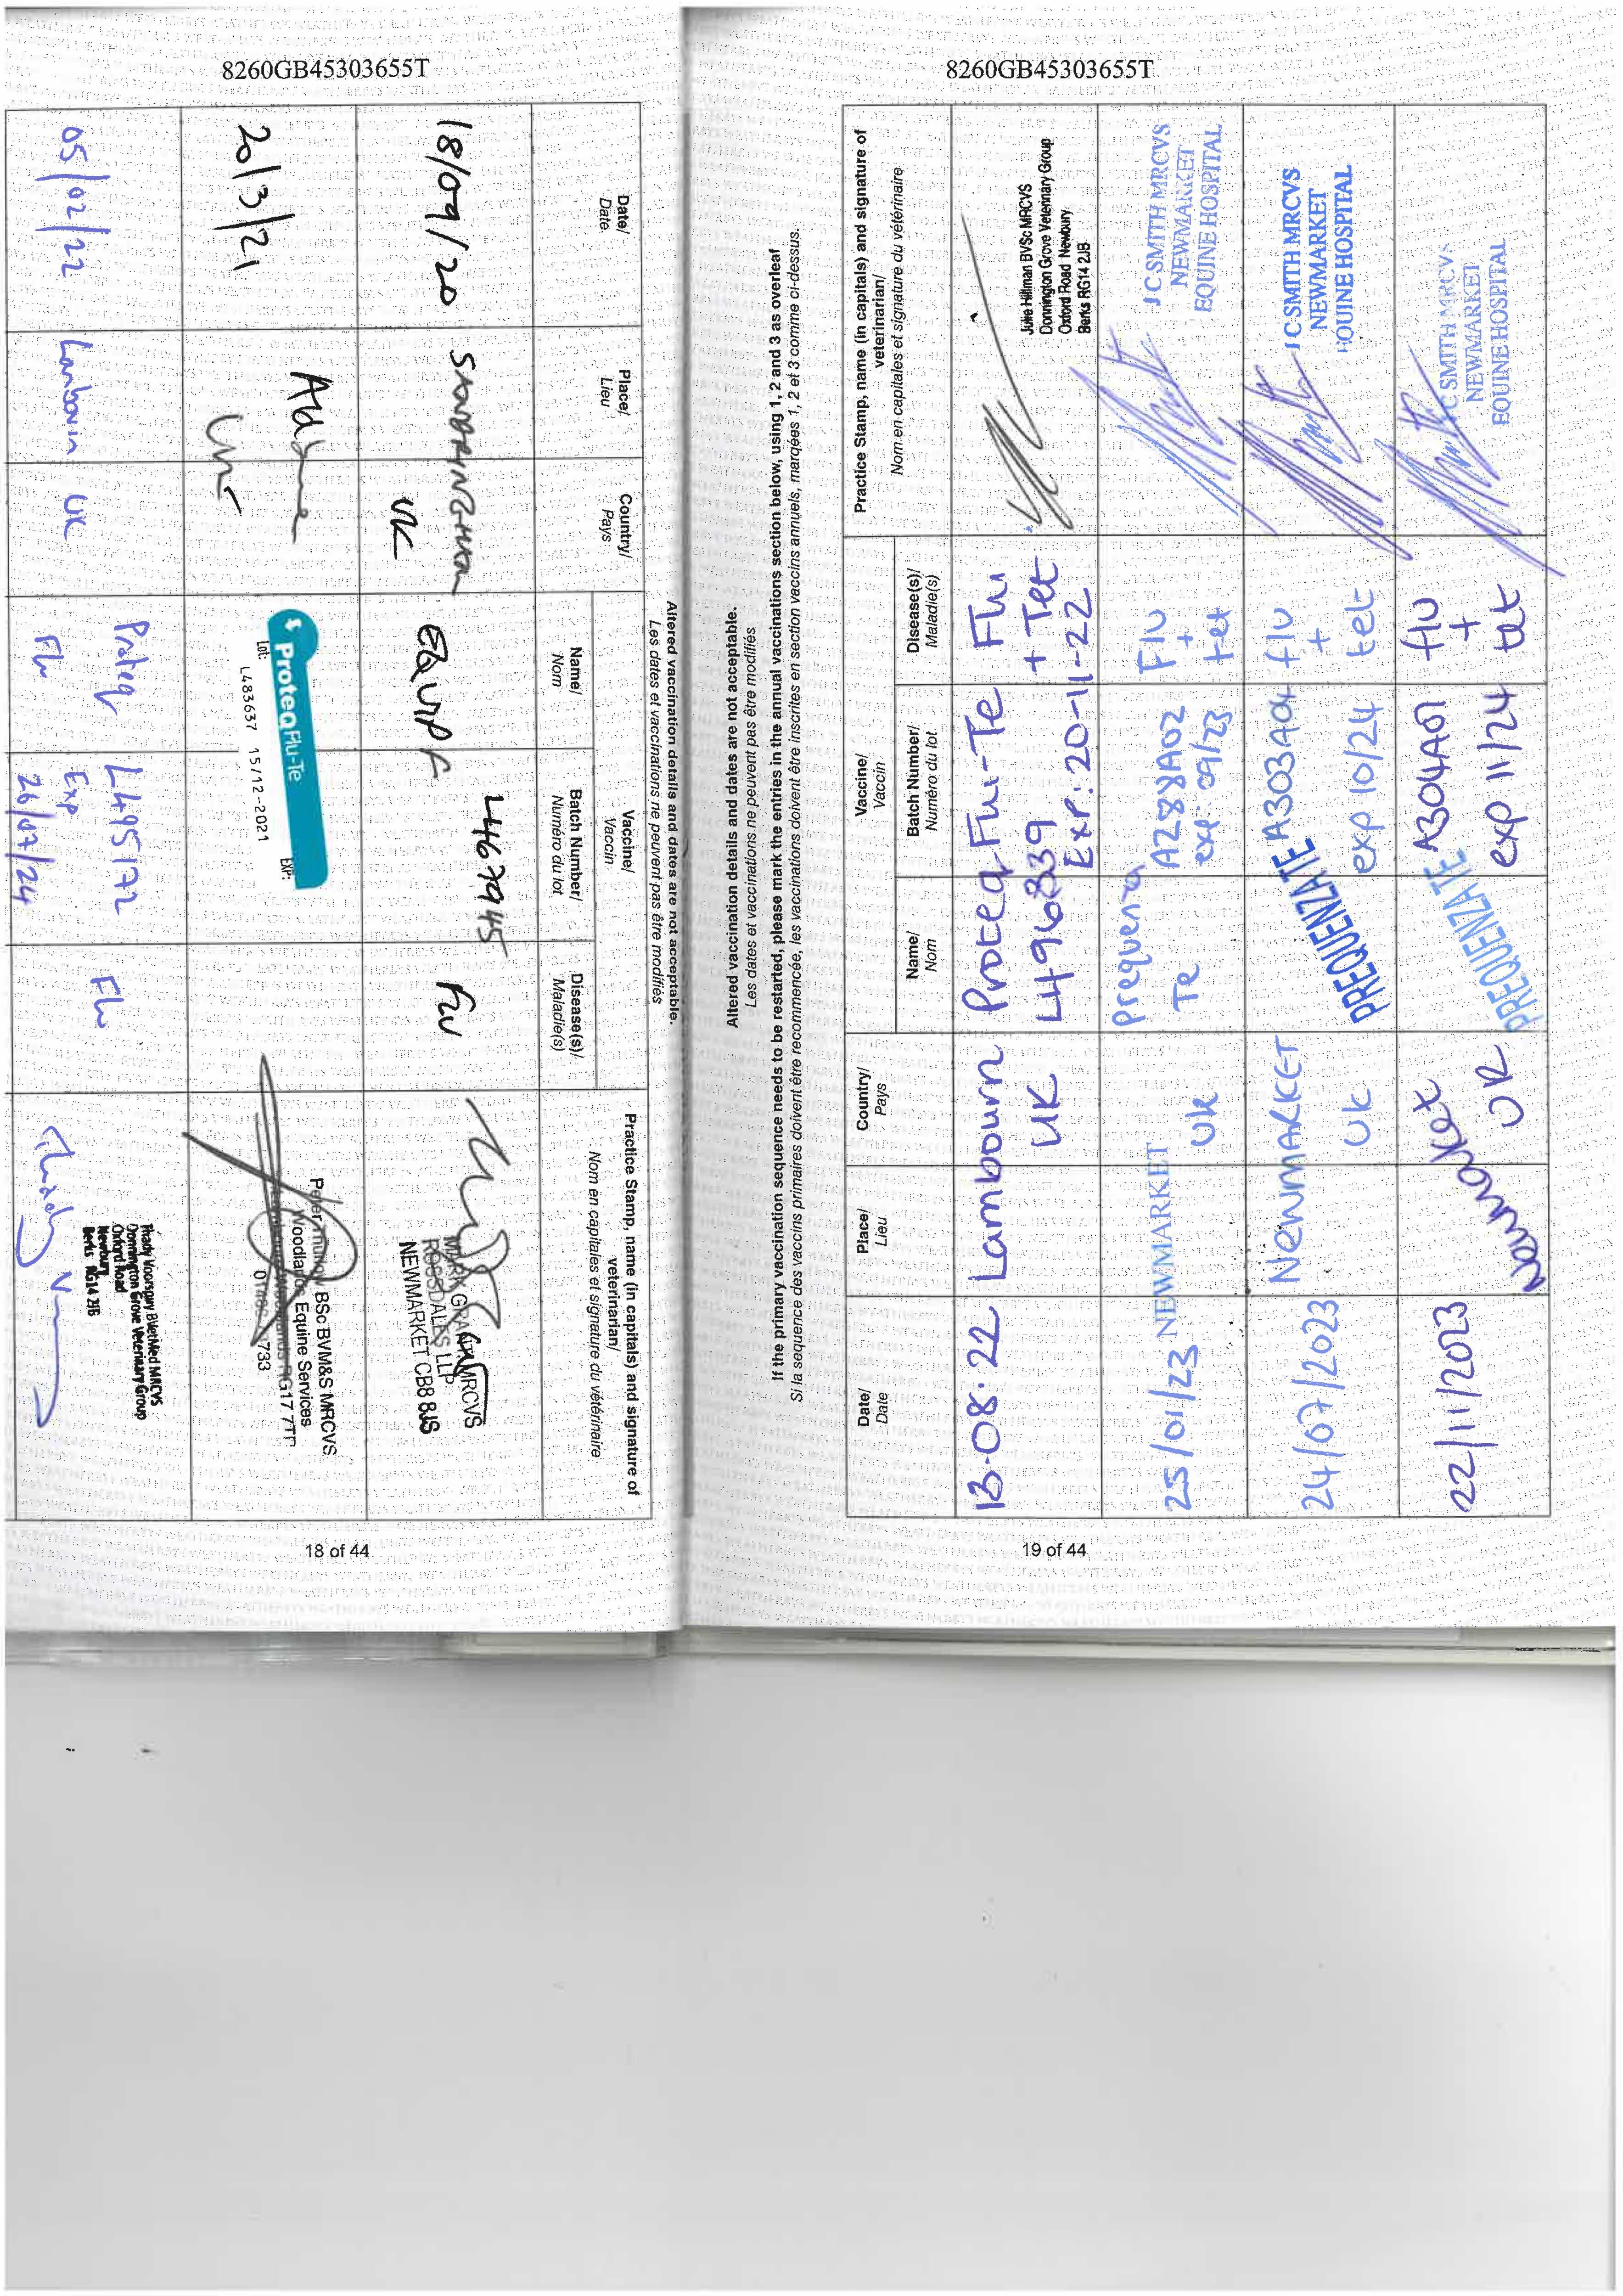 8260GB45303655T
Altered vaccination details and dates are not acceptable.
Les dates et vaccinations ne peuvent pas être modifiés
Date/
Date
Place/
Lieu
Country/
Pays
Vaccine/
Vaccin
Name/
Nom
Batch Number/
Numéro du lot
Disease(s)/
Maladie(s)
Practice Stamp, name (in capitals) and signature of
veterinarian/
Nom en capitales et signature du vétérinaire
18/09/20
SANDRINGHAM
UK
EQUIP F
L467945
FLU
MARK GRANT MRCVS
ROSSDALES LLP
NEWMARKET CB8 8JS
20/3/21
ProteqFlu-Te
Lot:
EXP:
L483637 15/12-2021
Peter BSc BVM&S MRCVS
Woodlands Equine Services
RG17 7TP
733
05/02/22
Lambourn UK
Proteq
Flu
L495172
Exp
26/07/24
Flu
Thady Voorspuy BVetMed MRCVS
Donnington Grove Veterinary Group
Oxford Road
Newbury
Berks RG14 2JB
18 of 44
8260GB45303655T
Altered vaccination details and dates are not acceptable.
Les dates et vaccinations ne peuvent pas être modifiés
If the primary vaccination sequence needs to be restarted, please mark the entries in the annual vaccinations section below, using 1, 2 and 3 as overleaf
Si la sequence des vaccins primaires doivent être recommencée, les vaccinations doivent être inscrites en section vaccins annuels, marqées 1, 2 et 3 comme ci-dessus.
Date/
Date
Place/
Lieu
Country/
Pays
Vaccine/
Vaccin
Name/
Nom
Batch Number/
Numéro du lot
Disease(s)/
Maladie(s)
Practice Stamp, name (in capitals) and signature of
veterinarian/
Nom en capitales et signature du vétérinaire
13.08.22
Lambourn
UK
Proteq Flu-Te
L496839
Exp: 20-11-22
Flu
+ Tet
Julie Hillman BVSc MRCVS
Donnington Grove Veterinary Group
Oxford Road Newbury
Berks RG14 2JB
25/01/23
NEWMARKET
UK
Prequenza
Te
A288A02
exp: 09/23
Flu
+
tet
J C SMITH MRCVS
NEWMARKET
EQUINE HOSPITAL
24/07/2023
NEWMARKET
UK
PREQUENZA TE
A303A04
exp 10/24
flu
+
tet
J C SMITH MRCVS
NEWMARKET
EQUINE HOSPITAL
22/11/2023
Newmarket
UK
PREQUENZA TE
A304A01
exp 11/24
flu
+
tet
C SMITH MRCVS
NEWMARKET
EQUINE HOSPITAL
19 of 44